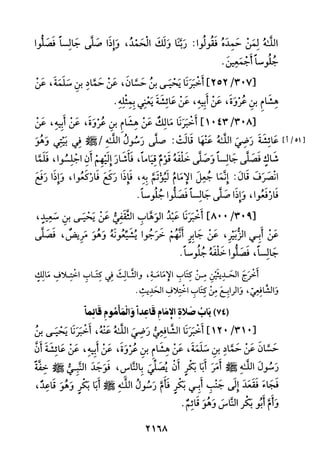 اللَّهُ لِمَنْ حَمِدَهُ فَقُولُوا: رَبَّنَا وَلَكَ الْحَمْدُ، وَإِذَا صَلَّى جَالِساً فَصَلُّوا
جُلُوساً أَجْمَعِينَ.
[٢٥٢/٣٠٧] أَخْبَرَنَا يَحْيَـى بنُ حَسَّانَ، عَنْ حَمَّادِ بنِ سَلَمَةَ، عَنْ
هِشَامِ بنِ عُرْوَةَ، عَنْ أَبِيهِ، عَنْ عَائِشَةَ يَعْنِي بِمِثْلِهِ.
[١٠٤٣/٣٠٨] أَخْبَرَنَا مَالِكٌ عَنْ هِشَامِ بنِ عُرْوَةَ، عَنْ أَبِيهِ، عَنْ
عَائِشَةَ رَضِيَ اللَّهُ عَنْهَا قَالَتْ: صلَّى رسُولُ /اللَّهِ ﷺ فِي بَيْتِي وَهُوَ [٥١/أ]
شَاكٍ فَصَلَّى جَالِساً وَصَلَّى خَلْفَهُ قَوْمٌ قِيَاماً، فَأَشَارَ إِلَيْهِمْ أَنِ اجْلِسُوا، فَلَمَّا
انْصَرَفَ قَالَ: إِنَّمَا جُعِلَ الإِمَامُ لِيُؤْتَمَّ بِهِ، فَإِذَا رَكَعَ فَارْكَعُوا، وَإِذَا رَفَعَ
فَارْفَعُوا، وَإِذَا صَلَّى جَالِساً فَصَلُّوا جُلُوساً.
[٨٠٠/٣٠٩] أَخْبَرَنَا عَبْدُ الوَهَّابِ الثَّقَفِيُّ، عَنْ يَحْيَـى بنِ سَعِيدٍ،
عَنْ أَبِـي الزُّبَيْرِ، عَنْ جَابِرٍ، أَنَّهُمْ خَرَجُوا يُشَيِّعُونَهُ وَهُوَ مَرِيضٌ، فَصَلَّى
جَالِساً، فَصَلُّوا خَلْفَهُ جُلُوساً.
أَخْرَجَ الحَـدِيثَيْنِ مِـنْ كِتَابِ الإِمَـامَـةِ، والثَّـالِثَ فِي كِتَـابِ اخْتِـلافِ مَالِكٍ
وَالشَّافِعِيِّ، وَالرَابِعَ مِنْ كِتَابِ اخْتِلافِ الحَدِيثِ.
(٧٤) بَابُ صَلاةِ الإِمَامِ قَاعِداً وَالْمَأْمُومِ قَائِماً
[١٢٠/٣١٠] أَخْبَرَنَا الشَّافِعِيُّ رَضِيَ اللَّهُ عَنْهُ، أَخْبَرَنَا يَحْيَـى بنُ
حَسَّانَ عَنْ حَمَّادِ بنِ سَلَمَةَ، عَنْ هِشَامِ بنِ عُرْوَةَ، عَنْ أَبِيهِ، عَنْ عَائِشَةَ أَنَّ
رَسُولَ اللَّـهِ ﷺ أَمَرَ أَبَا بَكْرٍ أَنْ يُصَلِّيَ بِالنَّاسِ، فَوَجَدَ النَّبِـيُّ ﷺ خِفَّةً
فَجَاءَ فَقَعَدَ إِلَى جَنْبِ أَبِـي بَكْرٍ فَأَمَّ رَسُولُ اللَّـهِ ﷺ أَبَا بَكْرٍ وَهُوَ قَاعِدٌ،
وَأَمَّ أَبُو بَكْرٍ النَّاسَ وَهُوَ قَائِمٌ.
٢١٦٨